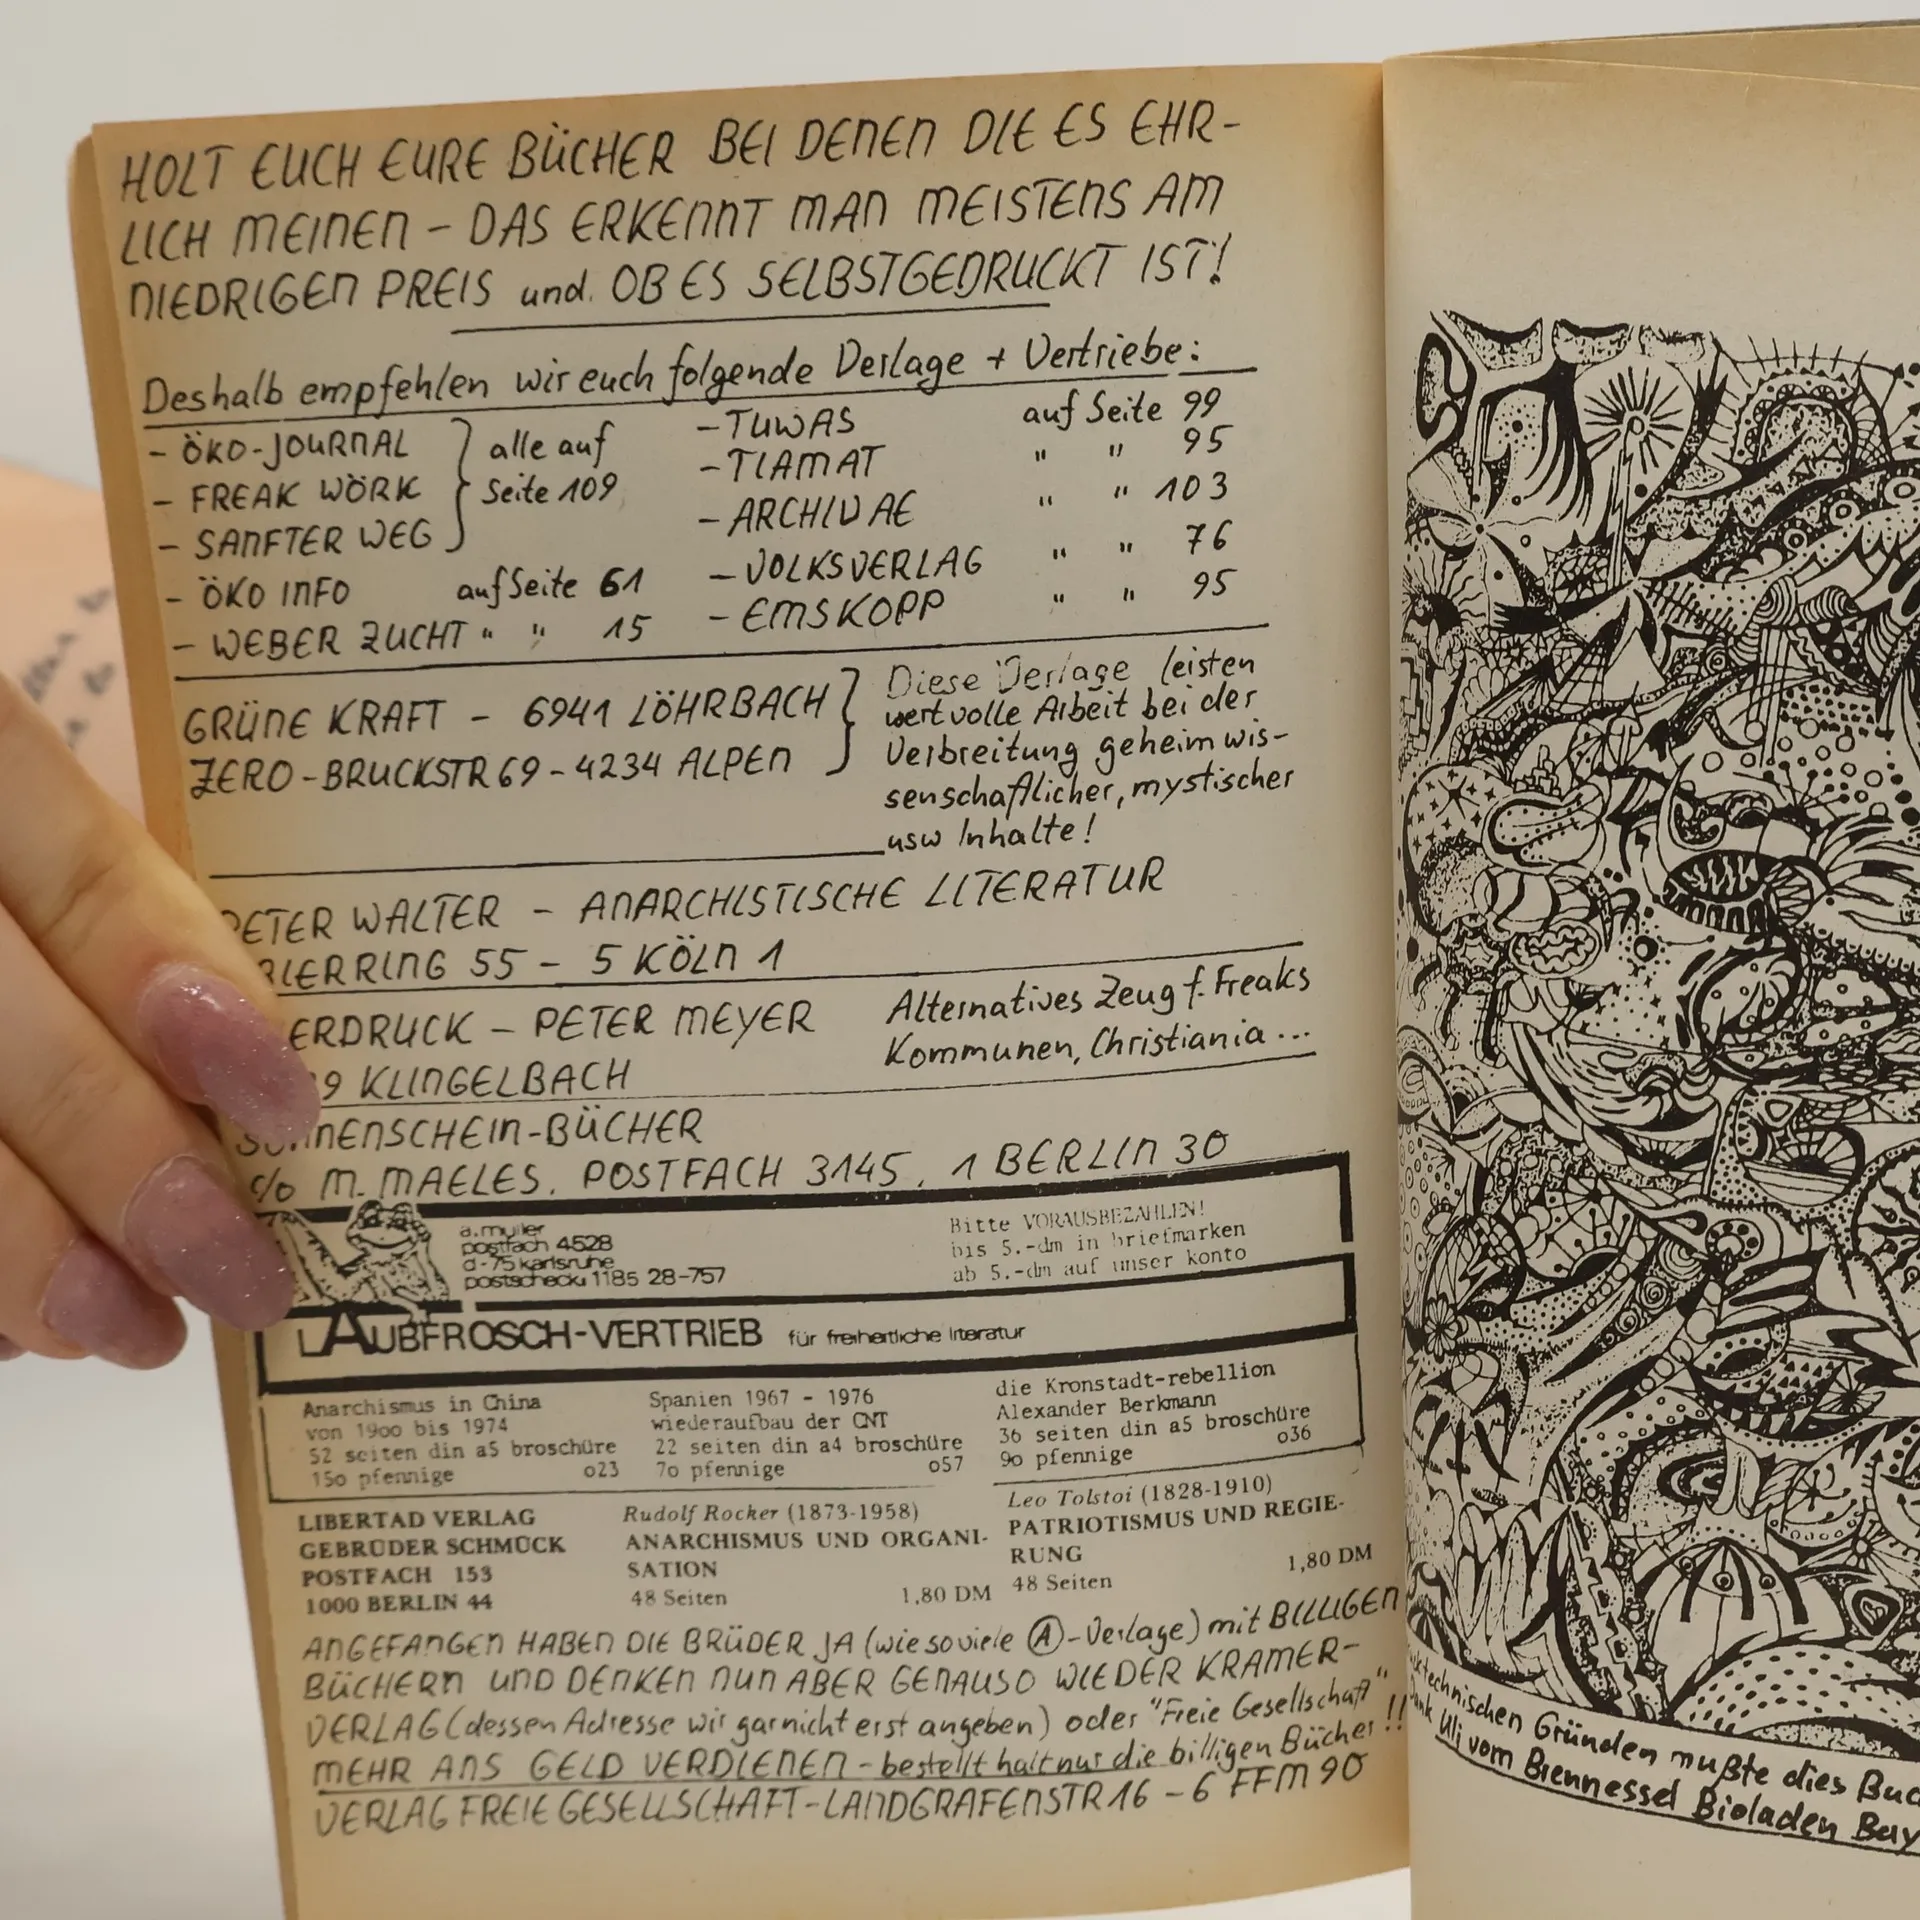 HOLT EUCH EURE BÜCHER BEI DENEN DIE ES EHR-
LICH MEINEN - DAS ERKENNT MAN MEISTENS AM
NIEDRIGEN PREIS und OB ES SELBSTGEDRUCKT IST!
Deshalb empfehlen wir euch folgende Verlage + Vertriebe:
- ÖKO-JOURNAL
- FREAK WÖRK
- SANFTER WEG
alle auf
Seite 109
- ÖKO INFO auf Seite 61
- WEBER ZUCHT " " 15
- TUWAS auf Seite 99
- TIAMAT " " 95
- ARCHIV AE " " 103
- VOLKSVERLAG " " 76
- EMSKOPP " " 95
GRÜNE KRAFT - 6941 LÖHRBACH
ZERO - BRUCKSTR 69 - 4234 ALPEN
Diese Verlage leisten
wertvolle Arbeit bei der
Verbreitung geheimwis-
senschaftlicher, mystischer
usw Inhalte!
PETER WALTER - ANARCHISTISCHE LITERATUR
55 - 5 KÖLN 1
- PETER MEYER
KLINGELBACH
Alternatives Zeug f. Freaks
Kommunen, Christiania ...
SONNENSCHEIN-BÜCHER
c/o M. MAELES. POSTFACH 3145, 1 BERLIN 30
a.müller
postfach 4528
d-75 karlsruhe
postscheck: 1185 28-757
Bitte VORAUSBEZAHLEN!
bis 5.-dm in briefmarken
ab 5.-dm auf unser konto
LAUBFROSCH-VERTRIEB für freiheitliche literatur
Anarchismus in China
von 19oo bis 1974
52 seiten din a5 broschüre
15o pfennige o23
Spanien 1967 - 1976
wiederaufbau der CNT
22 seiten din a4 broschüre
7o pfennige o57
die Kronstadt-rebellion
Alexander Berkmann
36 seiten din a5 broschüre
9o pfennige o36
LIBERTAD VERLAG
GEBRÜDER SCHMÜCK
POSTFACH 153
1000 BERLIN 44
Rudolf Rocker (1873-1958)
ANARCHISMUS UND ORGANI-
SATION
48 Seiten 1,80 DM
Leo Tolstoi (1828-1910)
PATRIOTISMUS UND REGIE-
RUNG
48 Seiten 1,80 DM
ANGEFANGEN HABEN DIE BRÜDER JA (wie so viele Ⓐ-Verlage) mit BILLIGEN
BÜCHERN UND DENKEN NUN ABER GENAUSO WIE DER KRAMER-
VERLAG (dessen Adresse wir garnicht erst angeben) oder "Freie Gesellschaft"
MEHR ANS GELD VERDIENEN - bestellt halt nur die billigen Bücher !!
VERLAG FREIE GESELLSCHAFT - LANDGRAFENSTR 16 - 6 FFM 90
technischen Gründen mußte dies
Uli vom Brennessel Bioladen